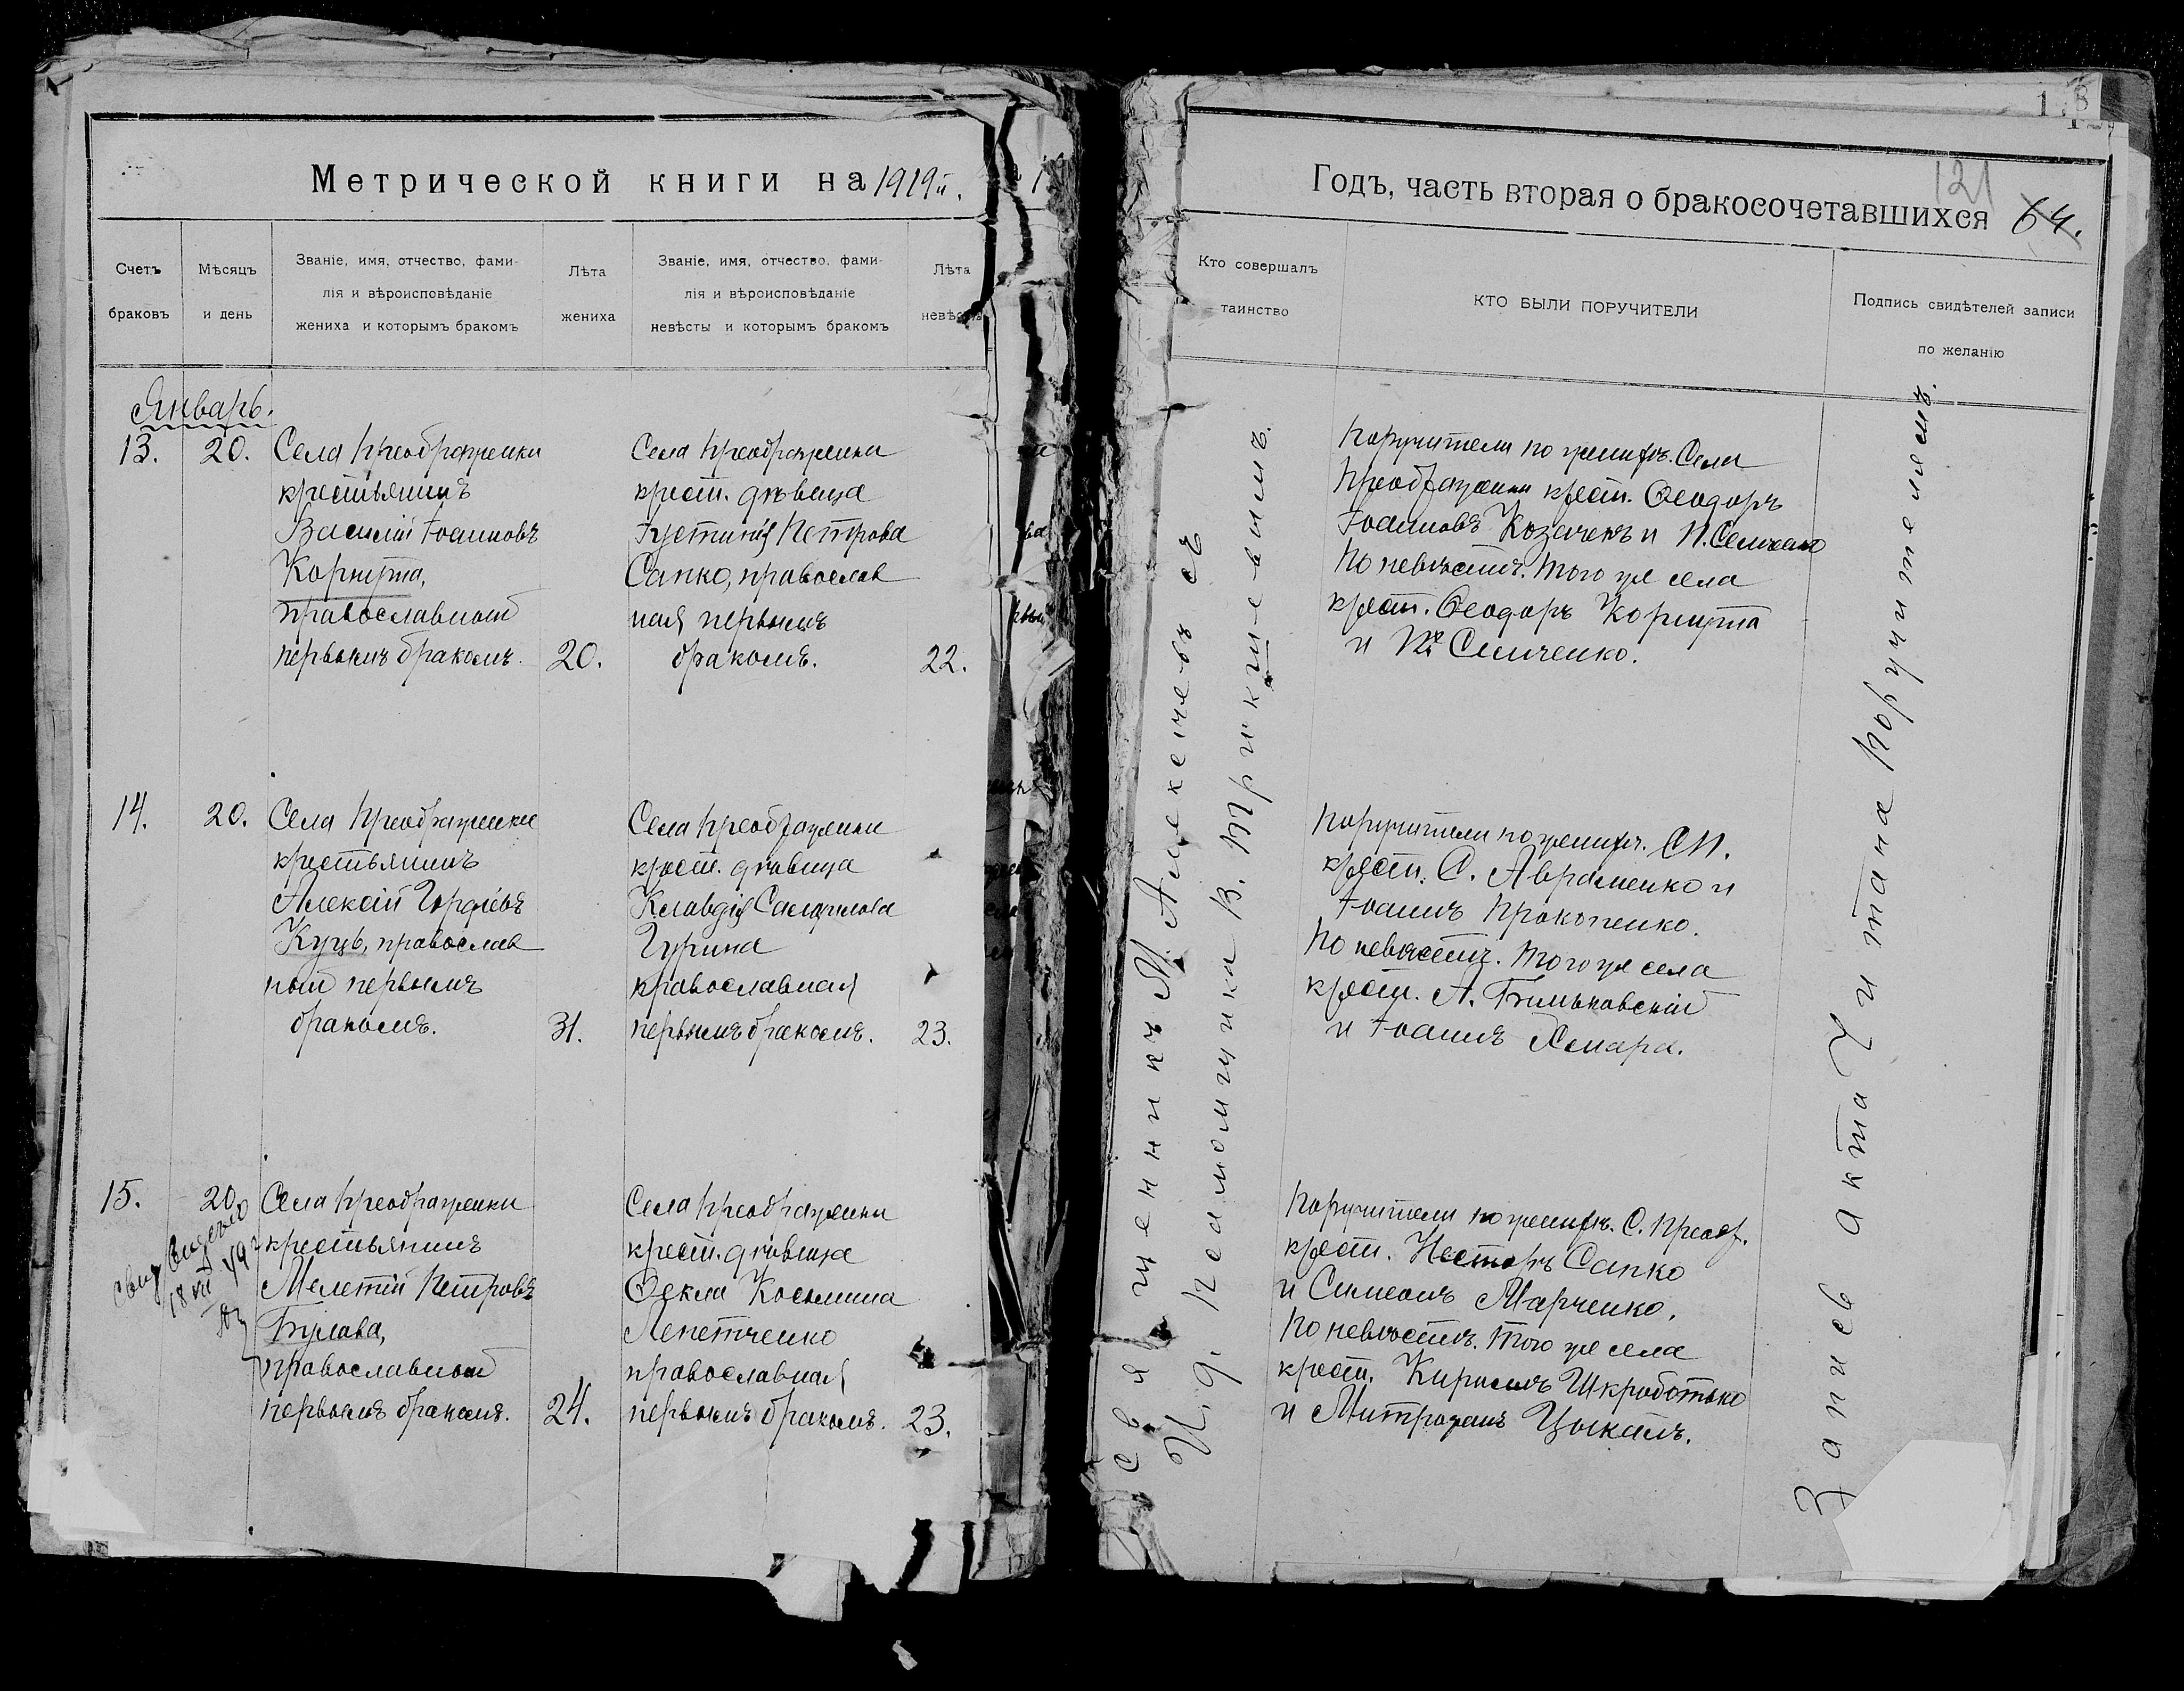 Метрической книги на 1919 й.
Счетъ
браковъ
Мѣсяцъ
и день
Званіе, имя, отчество, фами-
лія и вѣроисповѣданіе
жениха и которымъ бракомъ
Лѣта
жениха
Званіе, имя, отчество, фами-
лія и вѣроисповѣданіе
невѣсты и которымъ бракомъ
Лѣта
Январь.
13.
20.
Села Преображенки
крестьянинъ
Василій Іоанновъ
Коржута,
православный
первымъ бракомъ.
20.
Села Преображенки
крест. дѣвица
Іустинія Петрова
Сапко, православ
ная первымъ
бракомъ.
22.
14.
20.
Села Преображенки
крестьянинъ
Алексій Гордіевъ
Куць, православ
ный первымъ
бракомъ.
31.
Села Преображенки
крест. дѣвица
Клавдія
Гурина
православная
первымъ бракомъ.
23.
15.
20
Села Преображенки
крестьянинъ
Мелетій Петровъ
Булава,
православный
первымъ бракомъ.
24.
Села Преображенки
крест. дѣвица
Ѳекла Космина
Лепетченко
православная
первымъ бракомъ.
23.
18 VII
Годъ, часть вторая о бракосочетавшихся
121
64.
Кто совершалъ
таинство
КТО БЫЛИ ПОРУЧИТЕЛИ
Подпись свидѣтелей записи
по желанію
Священникъ М. Алексичевъ съ
И. д. Псаломщика В.
Поручители по женихѣ. Села
Преображенки крест. Ѳеодоръ
Іоанновъ Козаченъ и П.
По невѣстѣ. Того же села
крест. Ѳеодоръ Коржута
и Симченко.
Поручители по женихѣ. СП.
крест. С. Авраменко и
Іоаннъ Прокопенко.
По невѣстѣ. Того же села
крест. А. Биньковскій
и Іоаннъ
Поручители по женихѣ. С. Преоб.
крест. Несторъ Сапко
и Симеонъ Марченко.
По невѣстѣ. Того же села
крест. Кириллъ Шкроботько
и Митрофанъ Цыкалъ.
Запись акта Читана Поручителемъ.